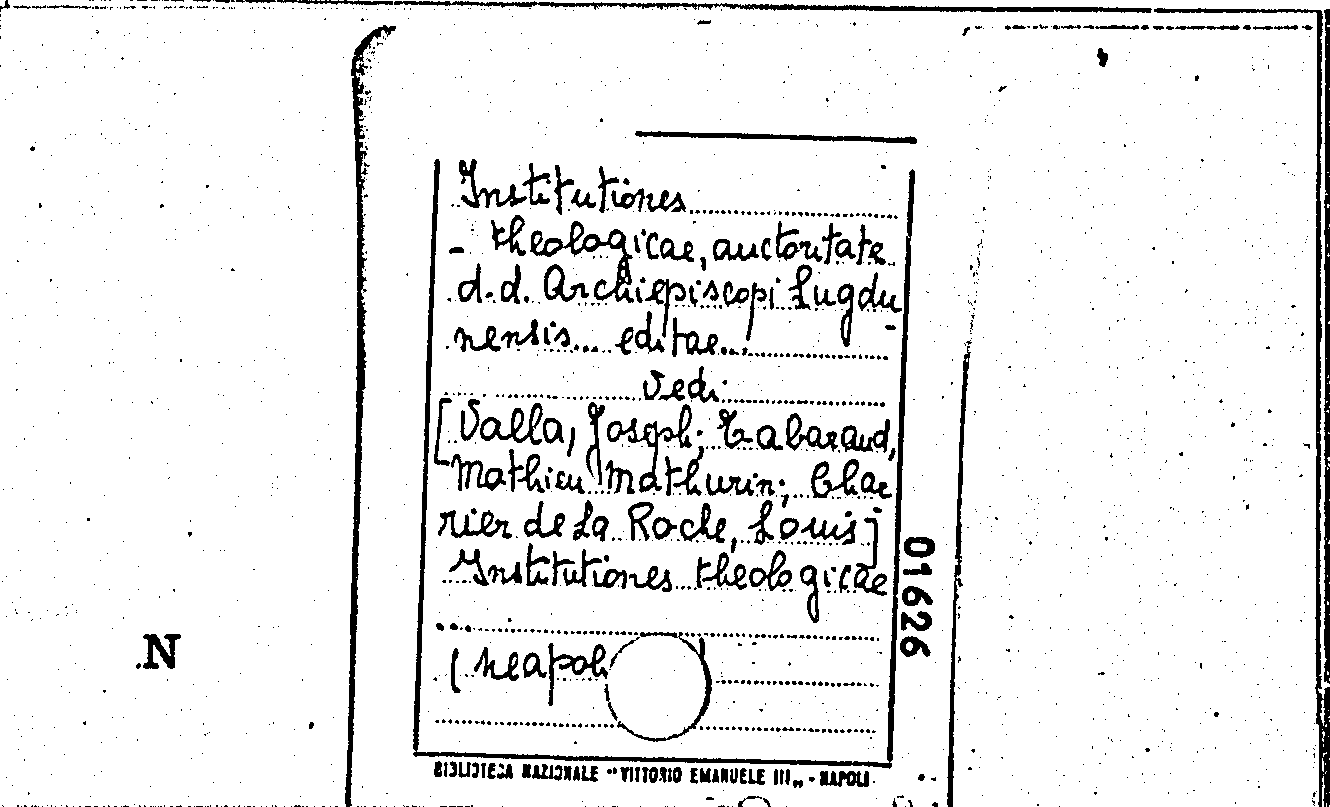 Institutiones
- theologicae, auctoritate
d.d. Archiepiscopi Lugdu
nensis... editae...
Vedi:
[Valla, Joseph; Tabaraud,
Mathieu Mathurin; Char
rier de La Roche, Louis]
Institutiones theologicae
...
(Neapoli
01626
N
BIBLIOTECA NAZIONALE "VITTORIO EMANUELE III„ - NAPOLI